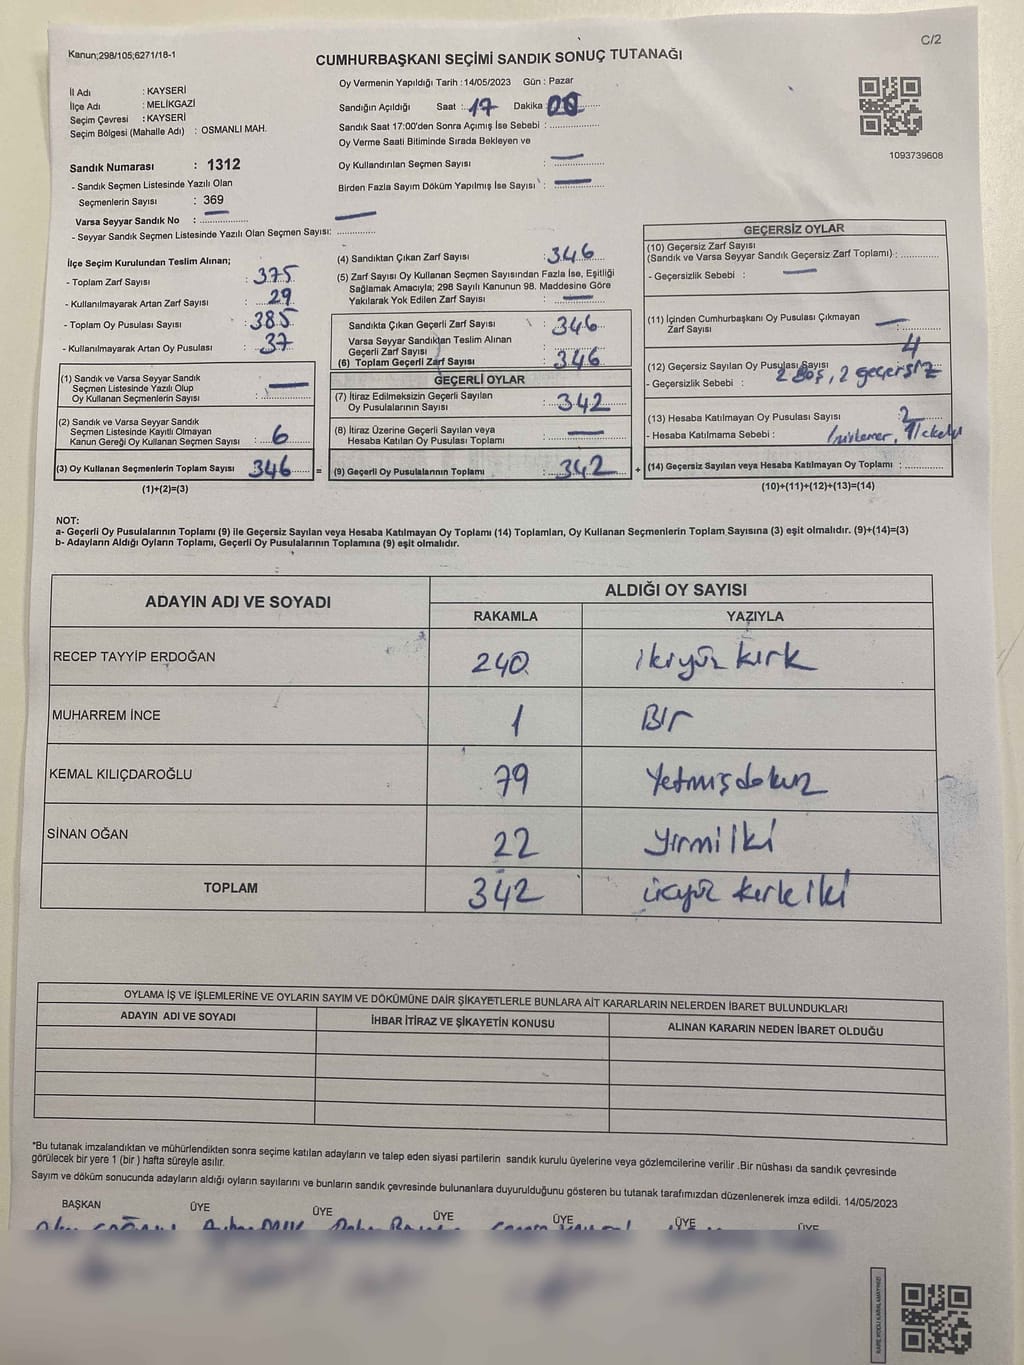 Kanun;298/105;6271/18-1
C/2
CUMHURBAŞKANI SEÇİMİ SANDIK SONUÇ TUTANAĞI
İl Adı : KAYSERİ
İlçe Adı : MELİKGAZİ
Seçim Çevresi : KAYSERİ
Seçim Bölgesi (Mahalle Adı) : OSMANLI MAH.
Sandık Numarası : 1312
- Sandık Seçmen Listesinde Yazılı Olan
Seçmenlerin Sayısı : 369
Varsa Seyyar Sandık No : —
- Seyyar Sandık Seçmen Listesinde Yazılı Olan Seçmen Sayısı: —
Oy Vermenin Yapıldığı Tarih :14/05/2023 Gün : Pazar
Sandığın Açıldığı Saat : 17 Dakika 00
Sandık Saat 17:00'den Sonra Açımış İse Sebebi :
Oy Verme Saati Bitiminde Sırada Bekleyen ve
Oy Kullandırılan Seçmen Sayısı : —
Birden Fazla Sayım Döküm Yapılmış İse Sayısı : —
1093739608
İlçe Seçim Kurulundan Teslim Alınan;
- Toplam Zarf Sayısı : 375
- Kullanılmayarak Artan Zarf Sayısı : 29
- Toplam Oy Pusulası Sayısı : 385
- Kullanılmayarak Artan Oy Pusulası : 37
(1) Sandık ve Varsa Seyyar Sandık
Seçmen Listesinde Yazılı Olup
Oy Kullanan Seçmenlerin Sayısı : —
(2) Sandık ve Varsa Seyyar Sandık
Seçmen Listesinde Kayıtlı Olmayan
Kanun Gereği Oy Kullanan Seçmen Sayısı : 6
(3) Oy Kullanan Seçmenlerin Toplam Sayısı 346 =
(1)+(2)=(3)
(4) Sandıktan Çıkan Zarf Sayısı : 346
(5) Zarf Sayısı Oy Kullanan Seçmen Sayısından Fazla İse, Eşitliği
Sağlamak Amacıyla; 298 Sayılı Kanunun 98. Maddesine Göre
Yakılarak Yok Edilen Zarf Sayısı : —
Sandıkta Çıkan Geçerli Zarf Sayısı : 346
Varsa Seyyar Sandıktan Teslim Alınan
Geçerli Zarf Sayısı :
(6) Toplam Geçerli Zarf Sayısı : 346
GEÇERLİ OYLAR
(7) İtiraz Edilmeksizin Geçerli Sayılan
Oy Pusulalarının Sayısı : 342
(8) İtiraz Üzerine Geçerli Sayılan veya
Hesaba Katılan Oy Pusulası Toplamı : —
(9) Geçerli Oy Pusulalarının Toplamı : 342 +
GEÇERSİZ OYLAR
(10) Geçersiz Zarf Sayısı
(Sandık ve Varsa Seyyar Sandık Geçersiz Zarf Toplamı) :
- Geçersizlik Sebebi : —
(11) İçinden Cumhurbaşkanı Oy Pusulası Çıkmayan
Zarf Sayısı : —
(12) Geçersiz Sayılan Oy Pusulası Sayısı 4
- Geçersizlik Sebebi : 2 Boş, 2 geçersiz
(13) Hesaba Katılmayan Oy Pusulası Sayısı : 2
- Hesaba Katılmama Sebebi :
(14) Geçersiz Sayılan veya Hesaba Katılmayan Oy Toplamı :
(10)+(11)+(12)+(13)=(14)
NOT:
a- Geçerli Oy Pusulalarının Toplamı (9) ile Geçersiz Sayılan veya Hesaba Katılmayan Oy Toplamı (14) Toplamları, Oy Kullanan Seçmenlerin Toplam Sayısına (3) eşit olmalıdır. (9)+(14)=(3)
b- Adayların Aldığı Oyların Toplamı, Geçerli Oy Pusulalarının Toplamına (9) eşit olmalıdır.
ADAYIN ADI VE SOYADI
ALDIĞI OY SAYISI
RAKAMLA YAZIYLA
RECEP TAYYİP ERDOĞAN 240 ikiyüz kırk
MUHARREM İNCE 1 Bir
KEMAL KILIÇDAROĞLU 79 Yetmişdokuz
SİNAN OĞAN 22 yirmi İki
TOPLAM 342 üçyüz kırk iki
OYLAMA İŞ VE İŞLEMLERİNE VE OYLARIN SAYIM VE DÖKÜMÜNE DAİR ŞİKAYETLERLE BUNLARA AİT KARARLARIN NELERDEN İBARET BULUNDUKLARI
ADAYIN ADI VE SOYADI İHBAR İTİRAZ VE ŞİKAYETİN KONUSU ALINAN KARARIN NEDEN İBARET OLDUĞU
*Bu tutanak imzalandıktan ve mühürlendikten sonra seçime katılan adayların ve talep eden siyasi partilerin sandık kurulu üyelerine veya gözlemcilerine verilir .Bir nüshası da sandık çevresinde
görülecek bir yere 1 (bir ) hafta süreyle asılır.
Sayım ve döküm sonucunda adayların aldığı oyların sayılarını ve bunların sandık çevresinde bulunanlara duyurulduğunu gösteren bu tutanak tarafımızdan düzenlenerek imza edildi. 14/05/2023
BAŞKAN ÜYE ÜYE ÜYE ÜYE ÜYE ÜYE